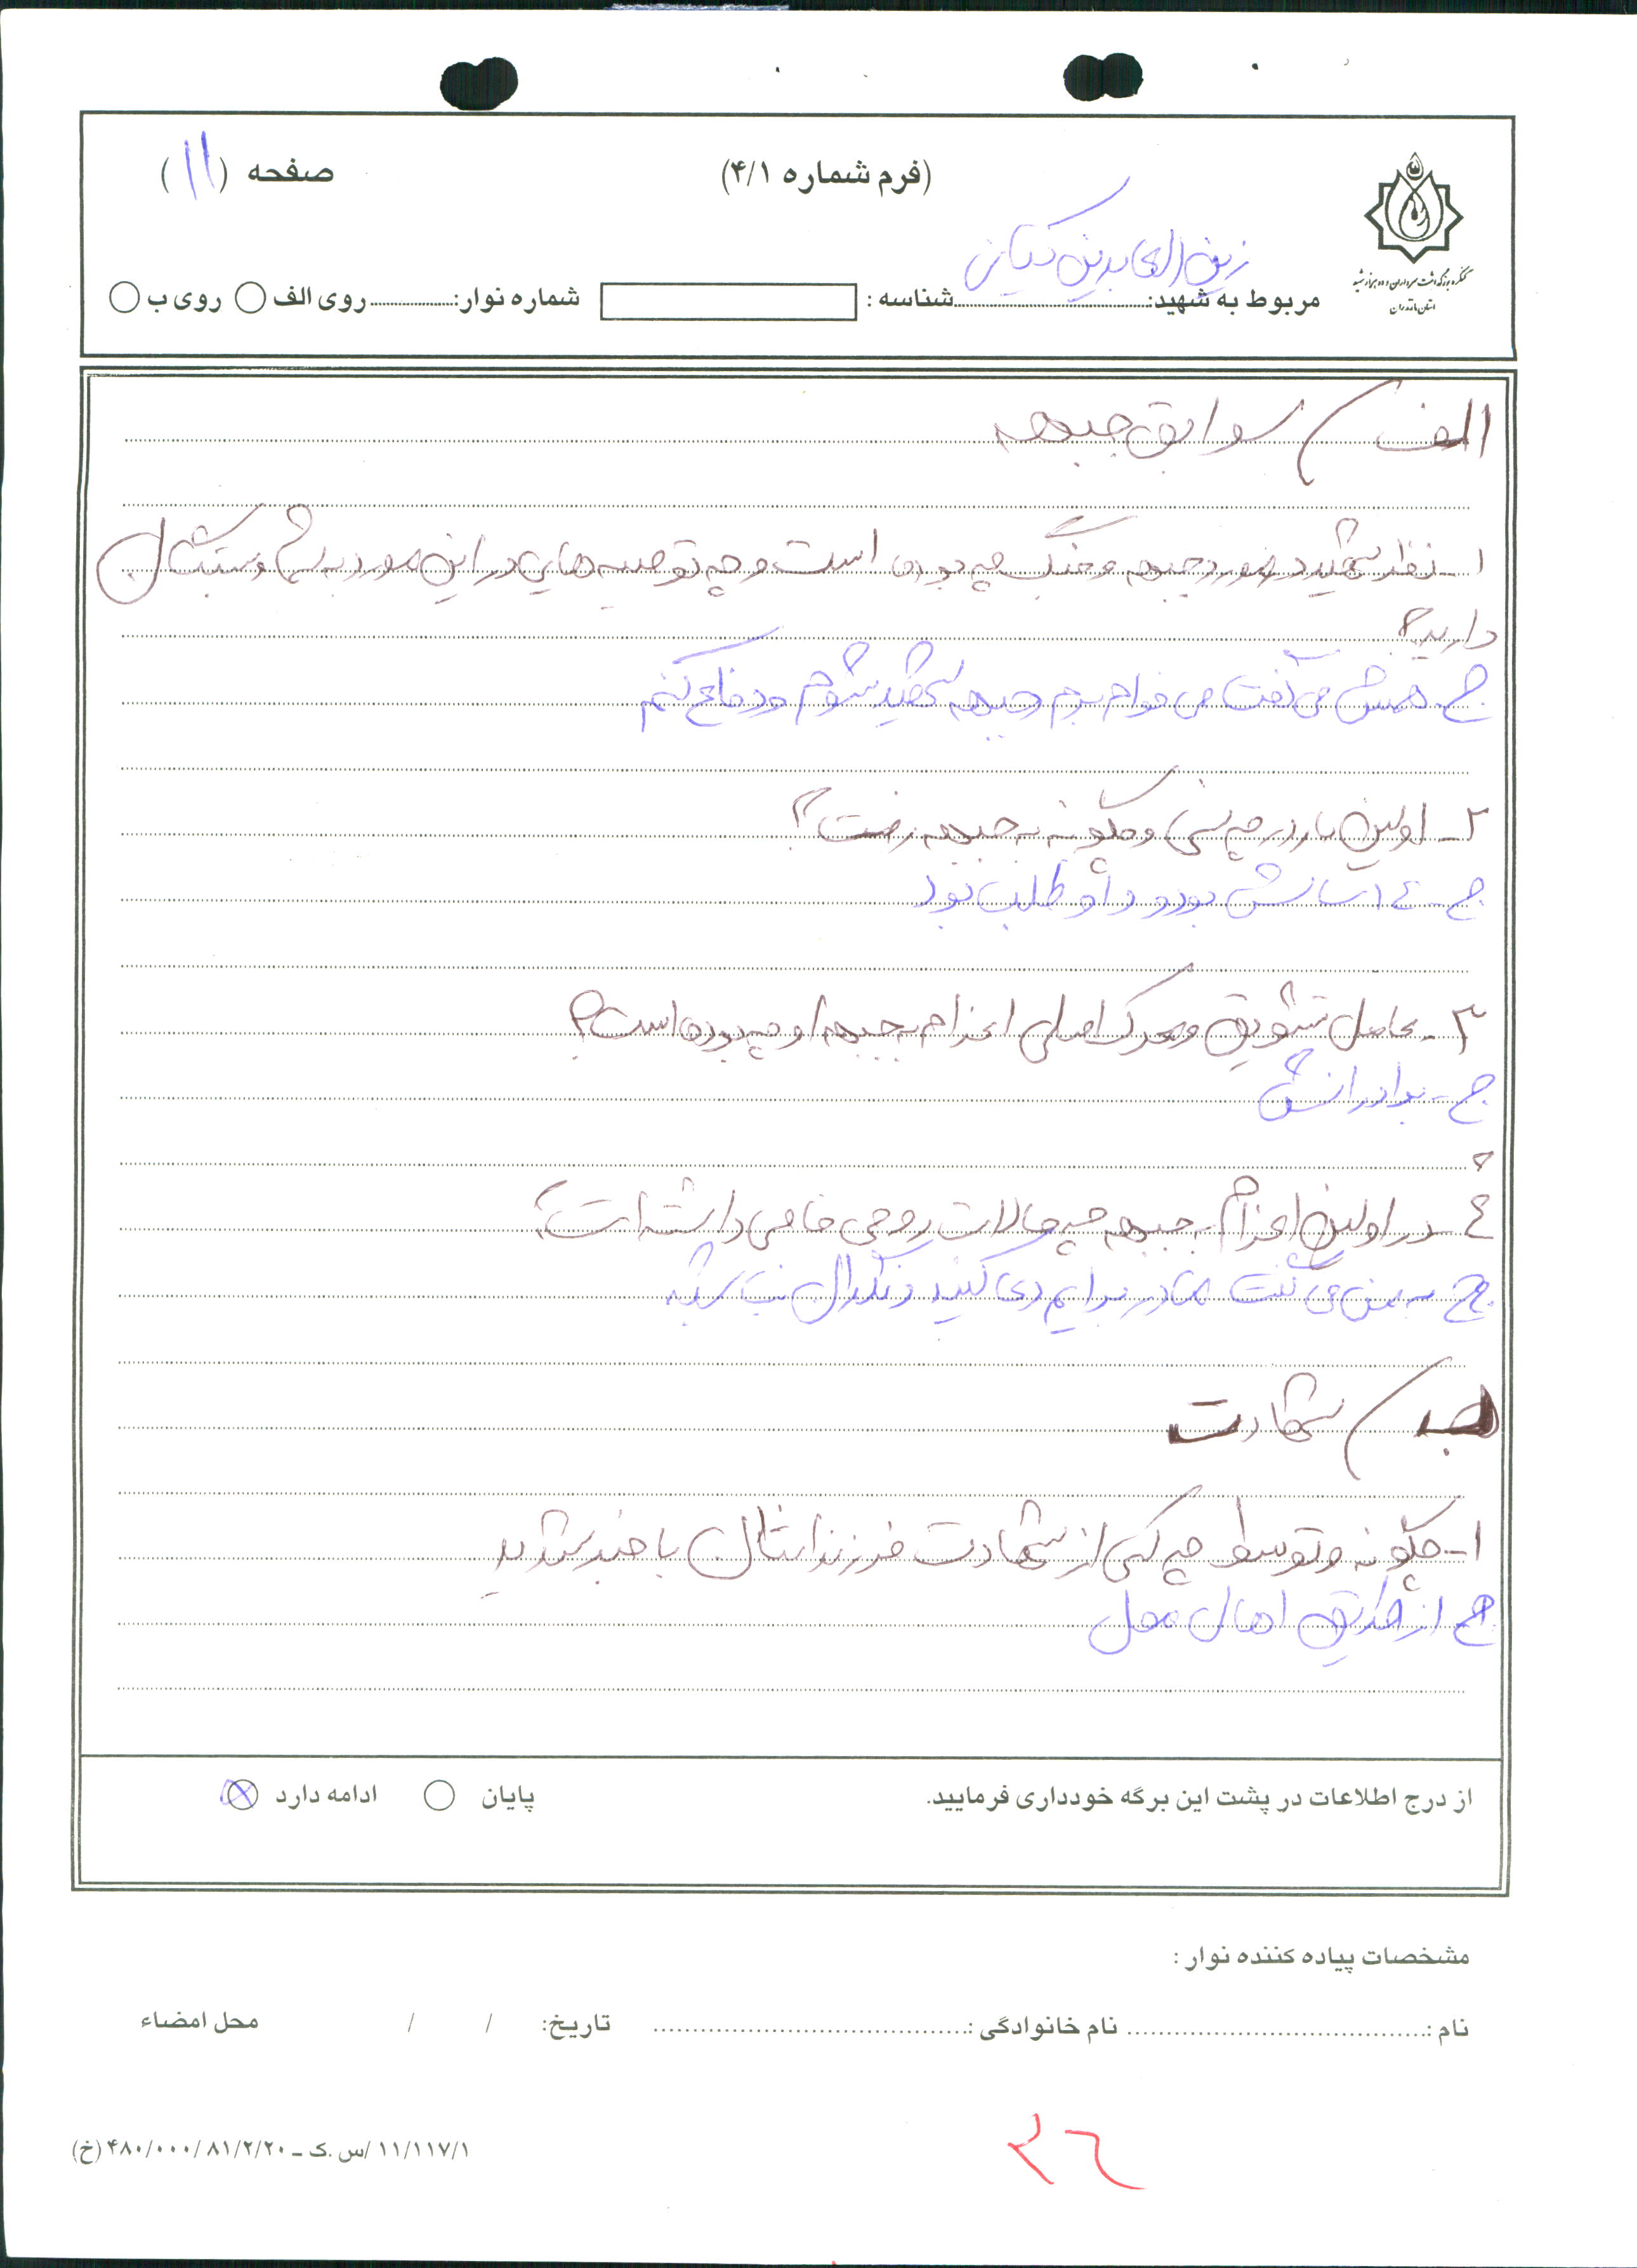 (فرم شماره ۴/۱)
صفحه (۱۱)
کنگره بزرگداشت سرداران و ده هزار شهید
استان مازندران
زین العابدین کیانی
مربوط به شهید: شناسه : شماره نوار: روی الف روی ب
الف / سوابق جبهه
۱- نظر شهید در مورد جبهه و جنگ چه بوده است و چه توصیه هایی در این مورد به شما و بستگان
دارید؟
ج- همش می گفت می خوام برم جبهه شهید شوم و دفاع کنم
۲- اولین بار در چه سنی و چگونه به جبهه رفت؟
ج- ۱۴ سالش بود و داوطلب بود
۳- عامل تشویق و محرک اصلی اعزام به جبهه او چه بوده است؟
ج- برادرانش
۴- در اولین اعزام به جبهه چه حالات روحی خاصی داشته است؟
ج- به من می گفت مادر برایم دعا کنید و نگران نباشید
ب / شهادت
۱- چگونه و توسط چه کسی از شهادت فرزندانتان با خبر شدید
ج از طریق اهالی محل
از درج اطلاعات در پشت این برگه خودداری فرمایید.
پایان ادامه دارد
مشخصات پیاده کننده نوار :
نام : نام خانوادگی : تاریخ: / / محل امضاء
۱۱/۱۱۷/۱ /س.ک – ۴۸۰/۰۰۰/۸۱/۲/۲۰ (خ)
۲۶